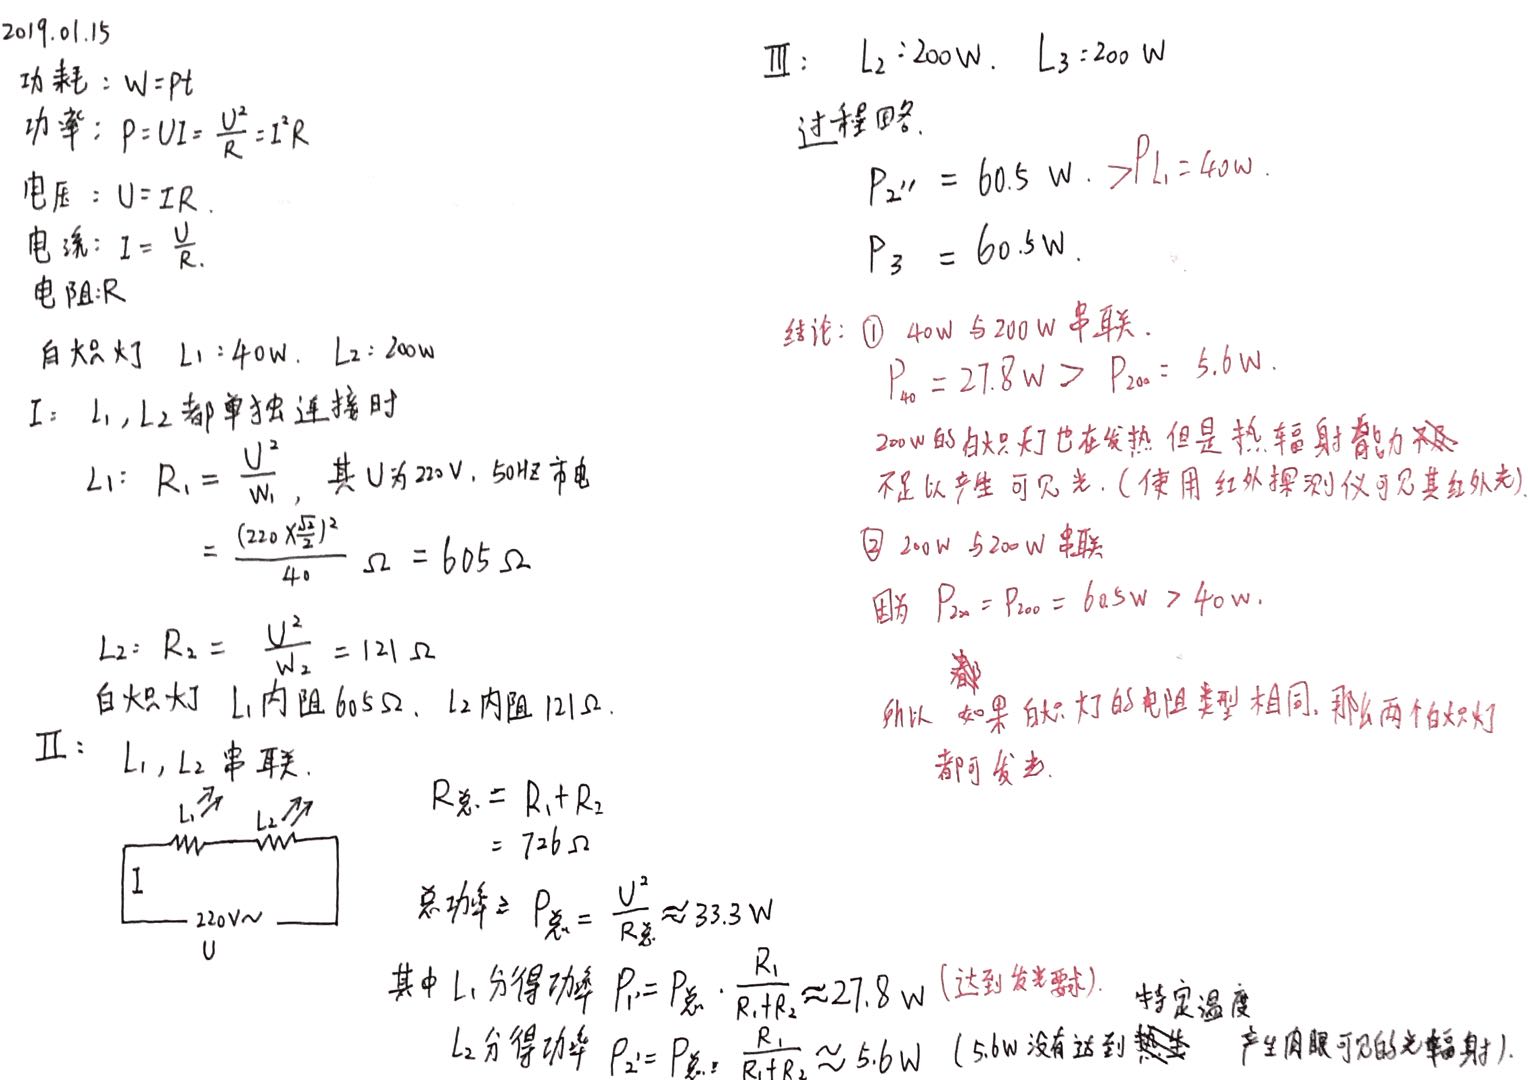 2019.01.15
功耗：W=Pt
功率：P=UI=U²/R=I²R
电压：U=IR.
电流：I=U/R.
电阻:R
白炽灯 L₁:40W. L₂:200W
I: L₁,L₂都单独连接时
L₁: R₁=U²/W₁, 其U为220V,50HZ市电
=(220×√2/2)²/40 Ω=605Ω
L₂: R₂=U²/W₂=121Ω
白炽灯 L₁内阻605Ω、L₂内阻121Ω.
II: L₁,L₂串联.
L₁ L₂
I
220V~
U
R总=R₁+R₂
=726Ω
总功率: P总=U²/R总≈33.3W
其中L₁分得功率 P₁'=P总·R₁/(R₁+R₂)≈27.8W (达到发光要求).
L₂分得功率 P₂'=P总·R₁/(R₁+R₂)≈5.6W (5.6W没有达到特定温度 产生肉眼可见的光辐射).
III: L₂:200W. L₃:200W
过程略.
P₂''=60.5W. >PL₁=40W.
P₃=60.5W.
结论: ① 40W与200W串联.
P₄₀=27.8W>P₂₀₀=5.6W.
200W的白炽灯也在发热但是热辐射能力
不足以产生可见光.(使用红外探测仪可见其红外光).
② 200W与200W串联
因为 P₂₀₀=P₂₀₀=60.5W>40W.
所以 如果白炽灯的电阻类型相同,那么两个白炽灯
都可发光.